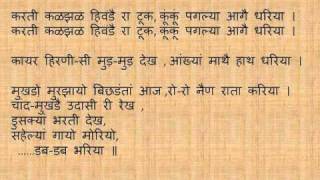 करती कळझळ हिवडै रा टूक,कूंकूं पगल्या आगै धरिया ।
करती कळझळ हिवडै रा टूक,कूंकूं पगल्या आगै धरिया ।
कायर हिरणी-सी मुड-मुड देख , आंख्यां माथै हाथ धरिया ।
मुखड़ो मुरझायो बिछडतां आज ,रो-रो नैण राता करिया ।
चांद-मुखडै उदासी री रेख ,
डुसक्या भरती देख,
सहेल्यां गायो मोरियो,
......डब-डब भरिया ॥